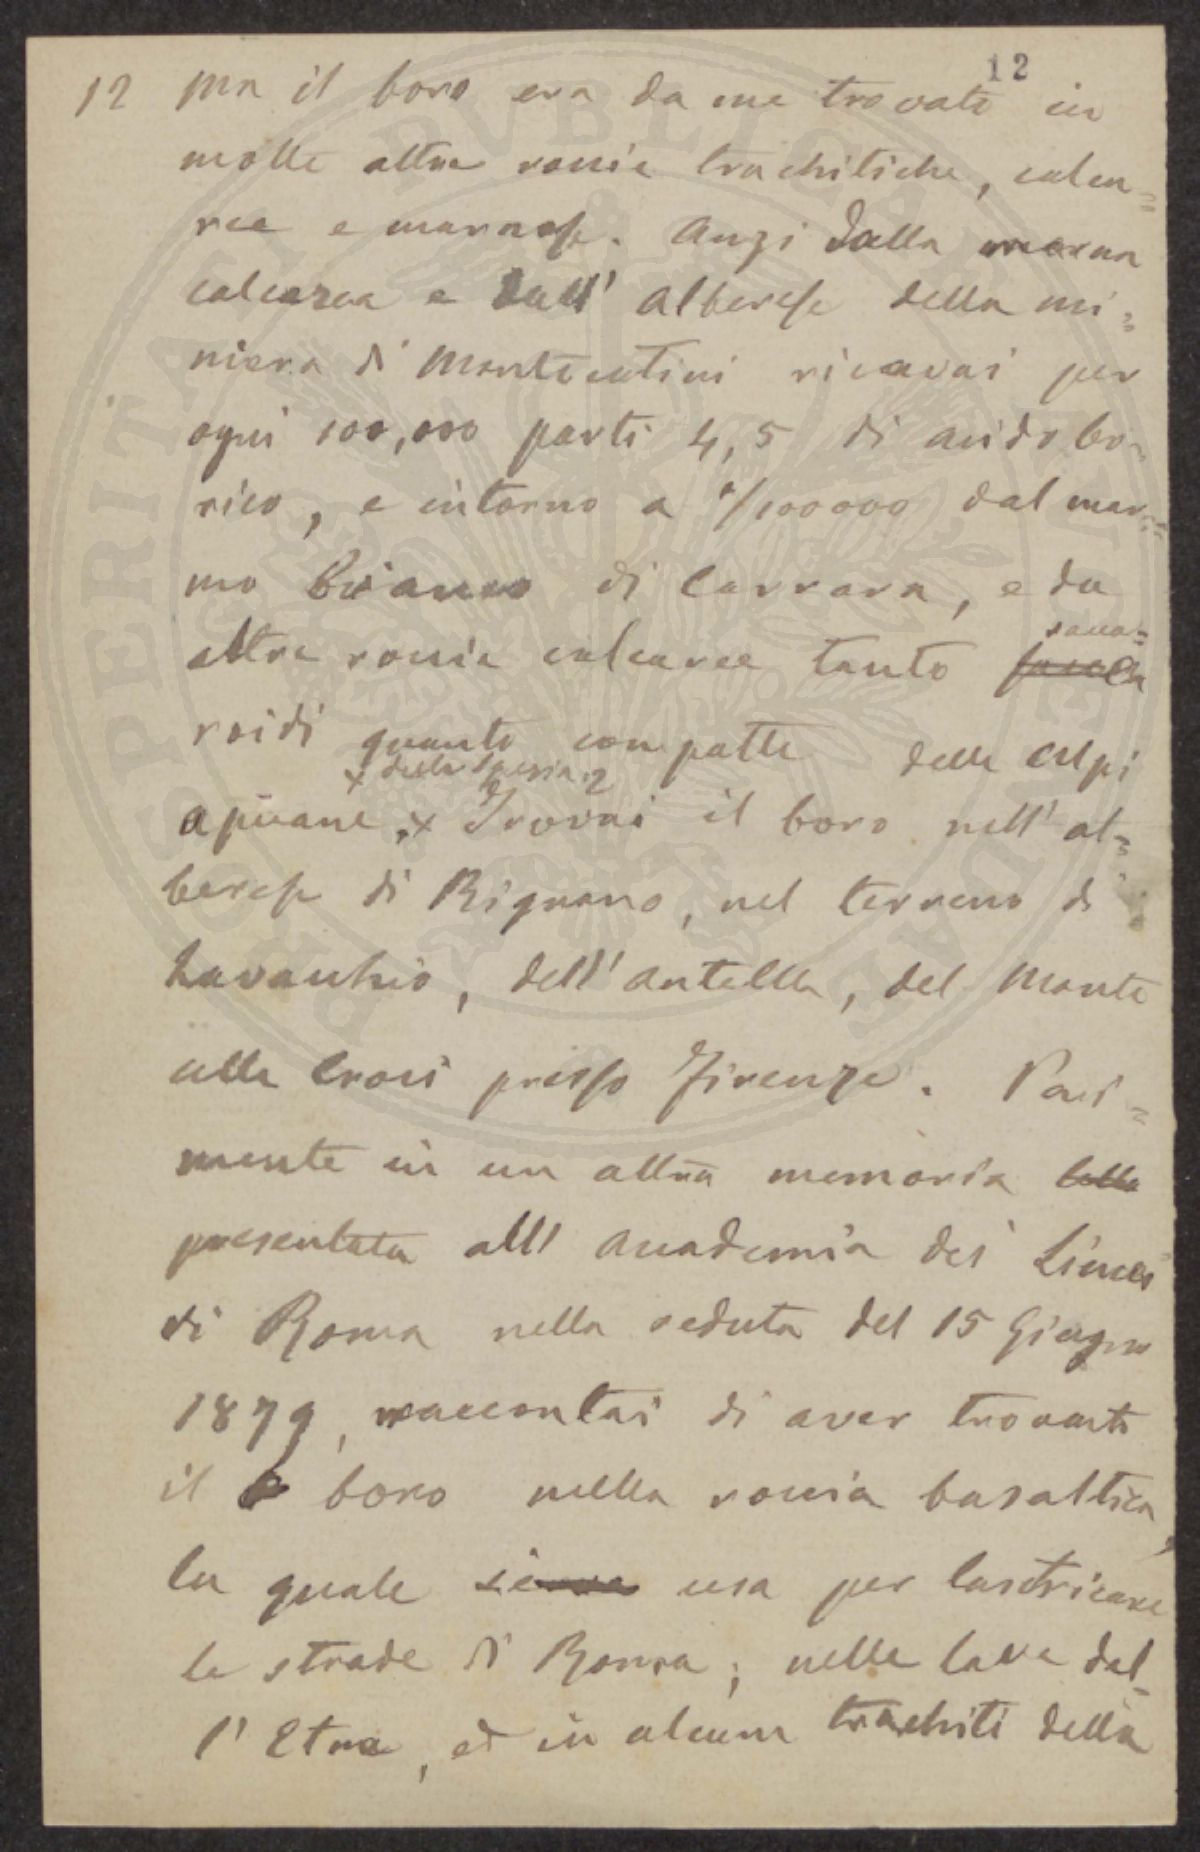 12
12 Ma il boro era da me trovato in
molte altre roccie trachitiche, calca=
ree e marnose. Anzi dalla marna
calcarea e dall' alberese della mi=
niera di Montecatini ricavai per
ogni 100,000 parti 4,5 di acido bo=
rico, e intorno a 1/100000 dal mar=
mo bianco di Carrara, e da
altre roccie calcaree tanto sacca=
roidi quanto compatte delle Alpi
x della Spezia
apuane. x Trovai il boro nell' al=
berese di Rignano, nel terreno di
Lavacchio, dell' Antella, del Monte
alle Croci presso Firenze. Pari=
mente in un altra memoria letta
presentata all' Accademia dei Lincei
di Roma nella seduta del 15 Giugno
1879, raccontai di aver trovato
il boro nella roccia basaltica,
la quale si usa per lastricare
le strade di Roma; nelle lave del=
l' Etna, ed in alcune trachiti della
PROSPERITATI PVBLICAE AVGENDAE